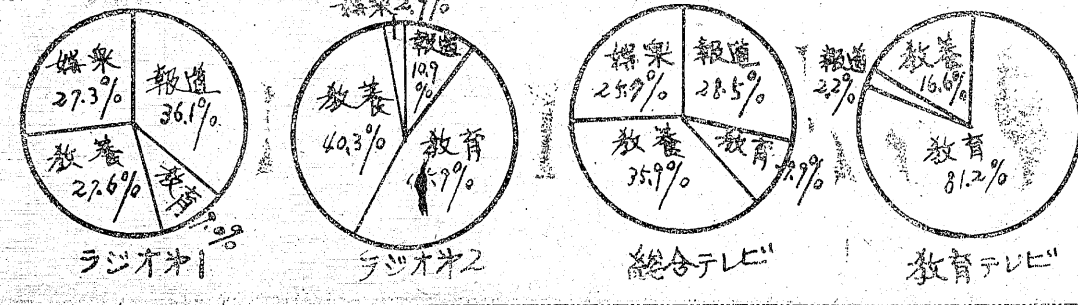 娯楽
27.3%
報道
36.1%
教養
27.6%
教育
ラジオ第1
娯楽2.9%
報道
10.9
%
教養
40.3%
教育
ラジオ第2
娯楽
報道
28.5%
教養
35.9%
教育
9.9%
総合テレビ
報道
2.2%
教養
16.6%
教育
81.2%
教育テレビ